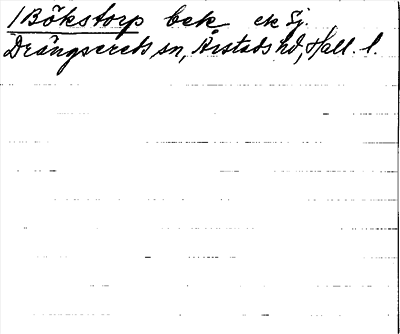 /Bökstorp bek ek Sj.
Drängsereds sn, Årstads hd, Hall. l.